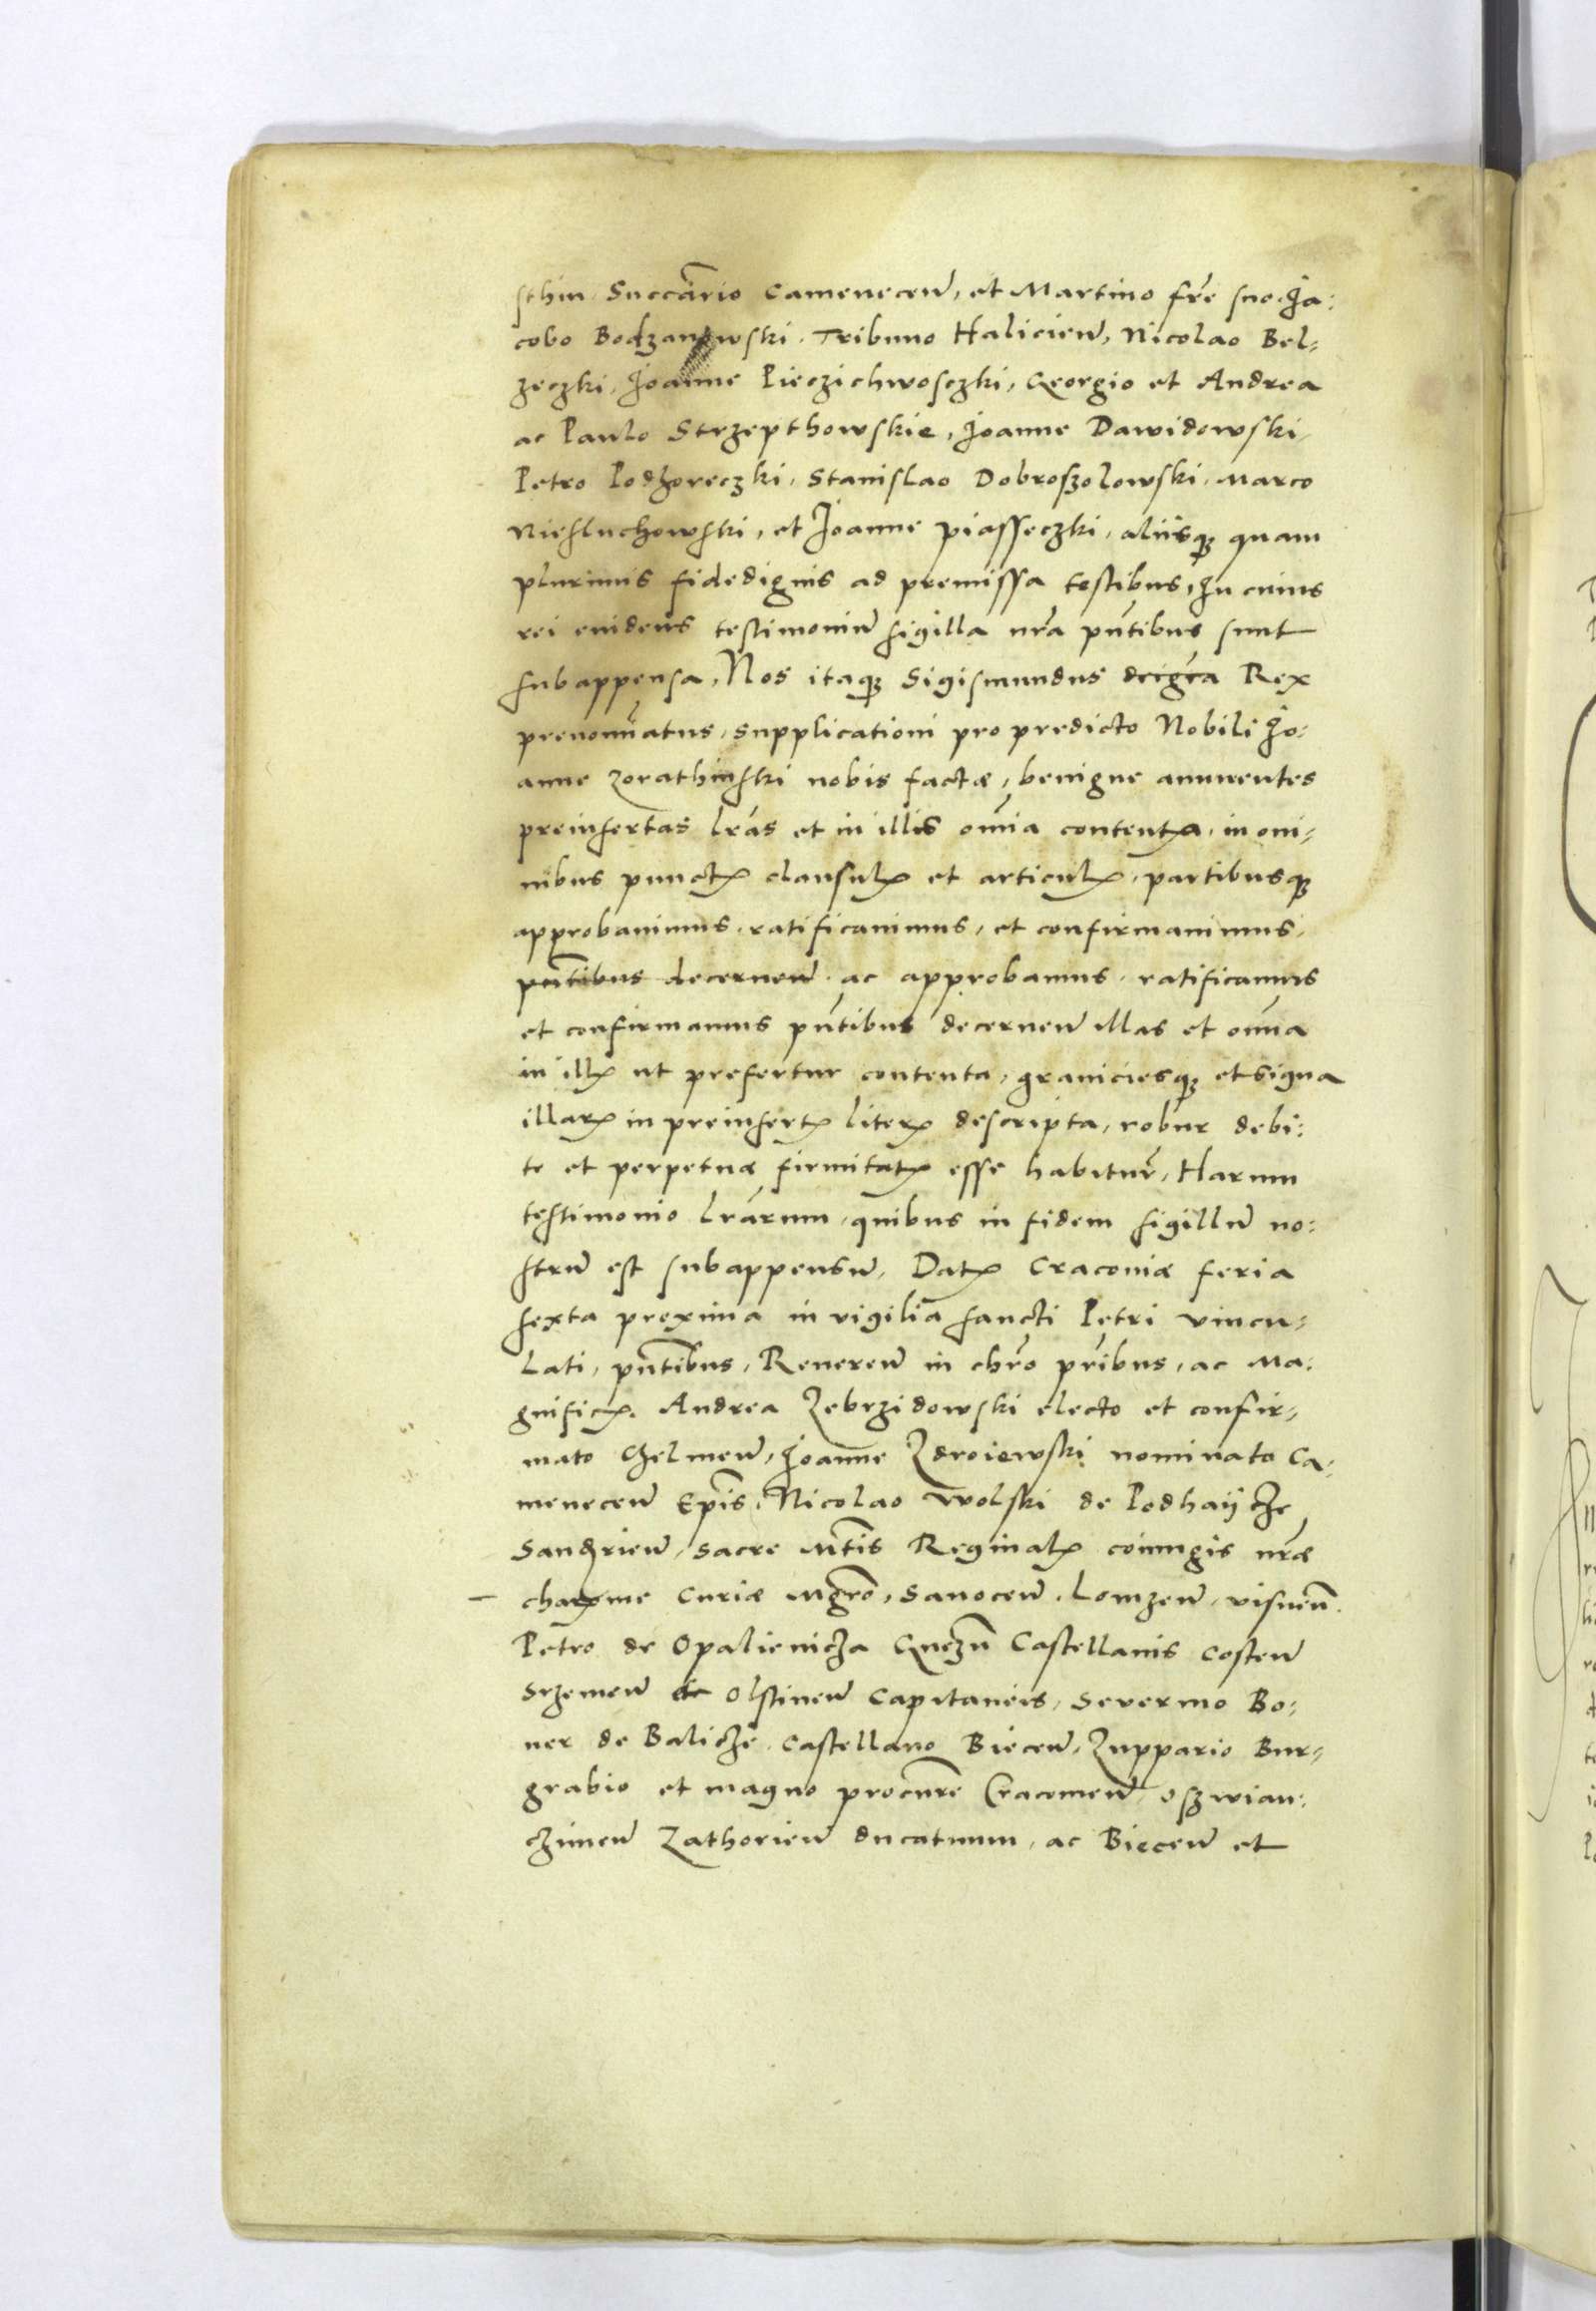 sthin, Succãrio Camenecen̄, et Martino fr̃e suo, Ja:
cobo Bodzanowski, Tribuno Halicien̄, Nicolao Bel-
zeczki, Joanne Pieczichwosczki, Georgio et Andrea
ac Paulo Strzepthowskie, Joanne Dawidowski,
Petro Podhoreczki, Stanislao Dobroszolowski, Marco
Niesluchowski, et Joanne piasseczki, aliisqꝫ quam
plurimis fidedignis ad premissa testibus, In cuius
rei euidens testimoniū sigilla nr̃a pn̄tibus sunt
subappensa, Nos itaqꝫ Sigismundus Rex
prenoīatus, supplicationi pro predicto Nobili Jo:
anne Zorathinski nobis factæ, benigne annuentes
preinsertas lr̃as et in illis om̄ia contenta, in om-
nibus punctꝭ clausulꝭ et articulꝭ, partibusqꝫ
approbauimus, ratificauimus, et confirmauimus,
pn̄tibus decernen̄ ac approbamus, ratificamus
et confirmamus pn̄tibus decernen̄ illas et om̄ia
in illꝭ ut prefertur contenta, graniciesqꝫ et signa
illarꝭ in preinsertꝭ literꝭ descripta, robur debi:
te et perpetuæ firmitatꝭ esse habitur̃, Harum
testimonio lr̃arum, quibus in fidem sigillū no:
strū est subappensū, Datꝭ Cracouiæ feria
sexta proxima in vigilia sancti Petri vincu-
lati, pn̄tibus, Reueren̄ in chr̃o pr̃ibus, ac Ma:
gnificꝭ, Andrea Zebrzidowski electo et confir-
mato Chelmen̄, Joanne Zdroiewski nominato Ca-
menecen̄ Ep̄is, Nicolao Wolski de Podhaycze
Sandrien̄, sacre Mt̄is Reginalꝭ coniugis nr̃æ
charꝭme Curiæ Mgr̃o, Sanocen̄, Lomzen̄, visnen̄
Petro de Opalienicza Gnezn̄ Castellanis Costen̄
Srzemen̄ Olstinen̄ Capitaneis, Seuerino Bo:
ner de Balicze, Castellano Biecen̄, Zuppario Bur-
grabio et magno procur̃re Cracouien̄ Oszwian:
czimen̄ Zathorien̄ ducatuum, ac Biecen̄ et